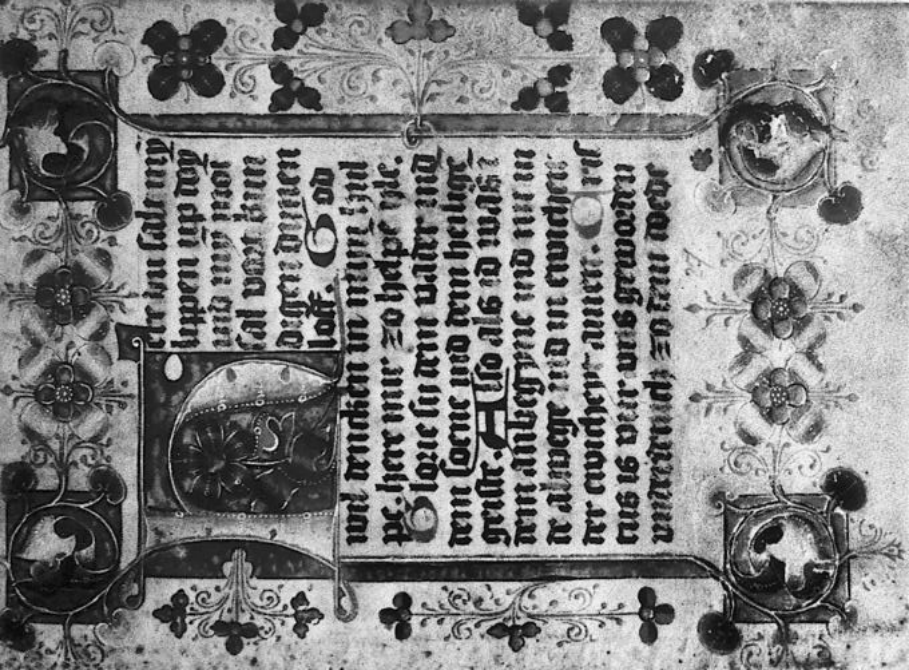 ere du salt mỹ
lippen up doy
ind mỹ mot
sal vort kun
digen dinen
loff. God
wil dencken in min hul
pe. here mir zo helpe yle.
Glorie sy dem vader ind
dem soene ind dem heilige
geiste. Also als id was ī
dem anbegyne ind nu in
de alwege ind in ewicheit
der ewicheyt amen. Cris
tus is vur uns geworden
underdenich zo dem dode